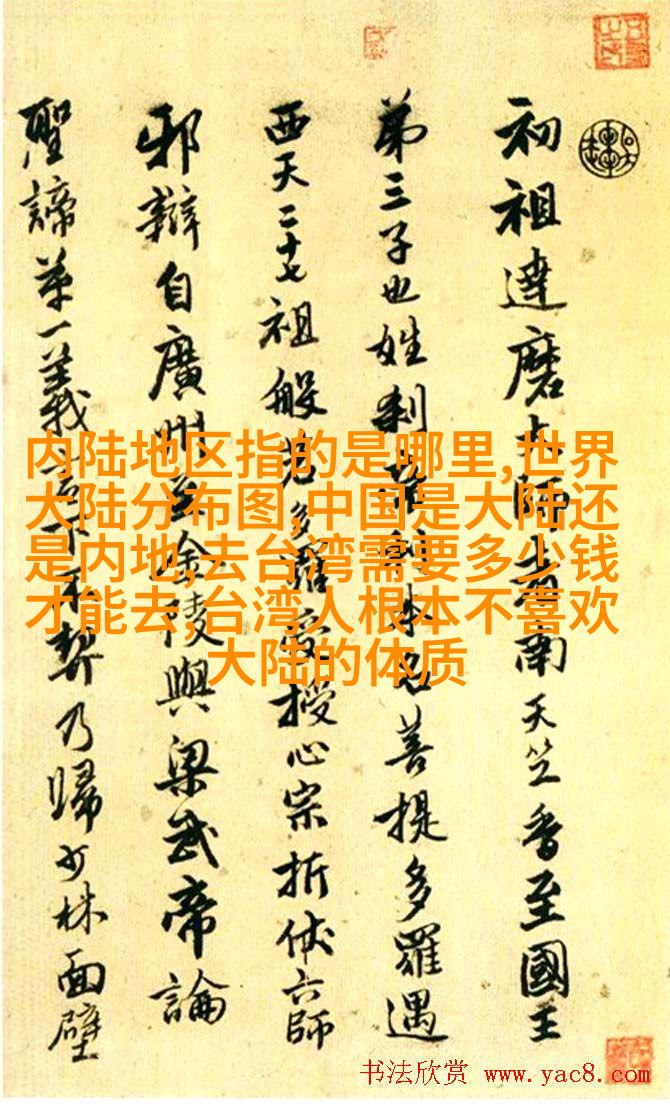 初祖達磨大師者南天竺香至國王
第三子也姓刹帝利本名菩提多羅遇
西天二十七祖般若多羅受授心宗折伏六師
邪辯自廣州至金陵與梁武帝論
聖諦第一義言下不契乃歸少林面壁
内陆地区指的是哪里,世界
大陆分布图,中国是大陆还
是内地,去台湾需要多少钱
才能去,台湾人根本不喜欢
大陆的体质
书法欣赏 www.yac8.com